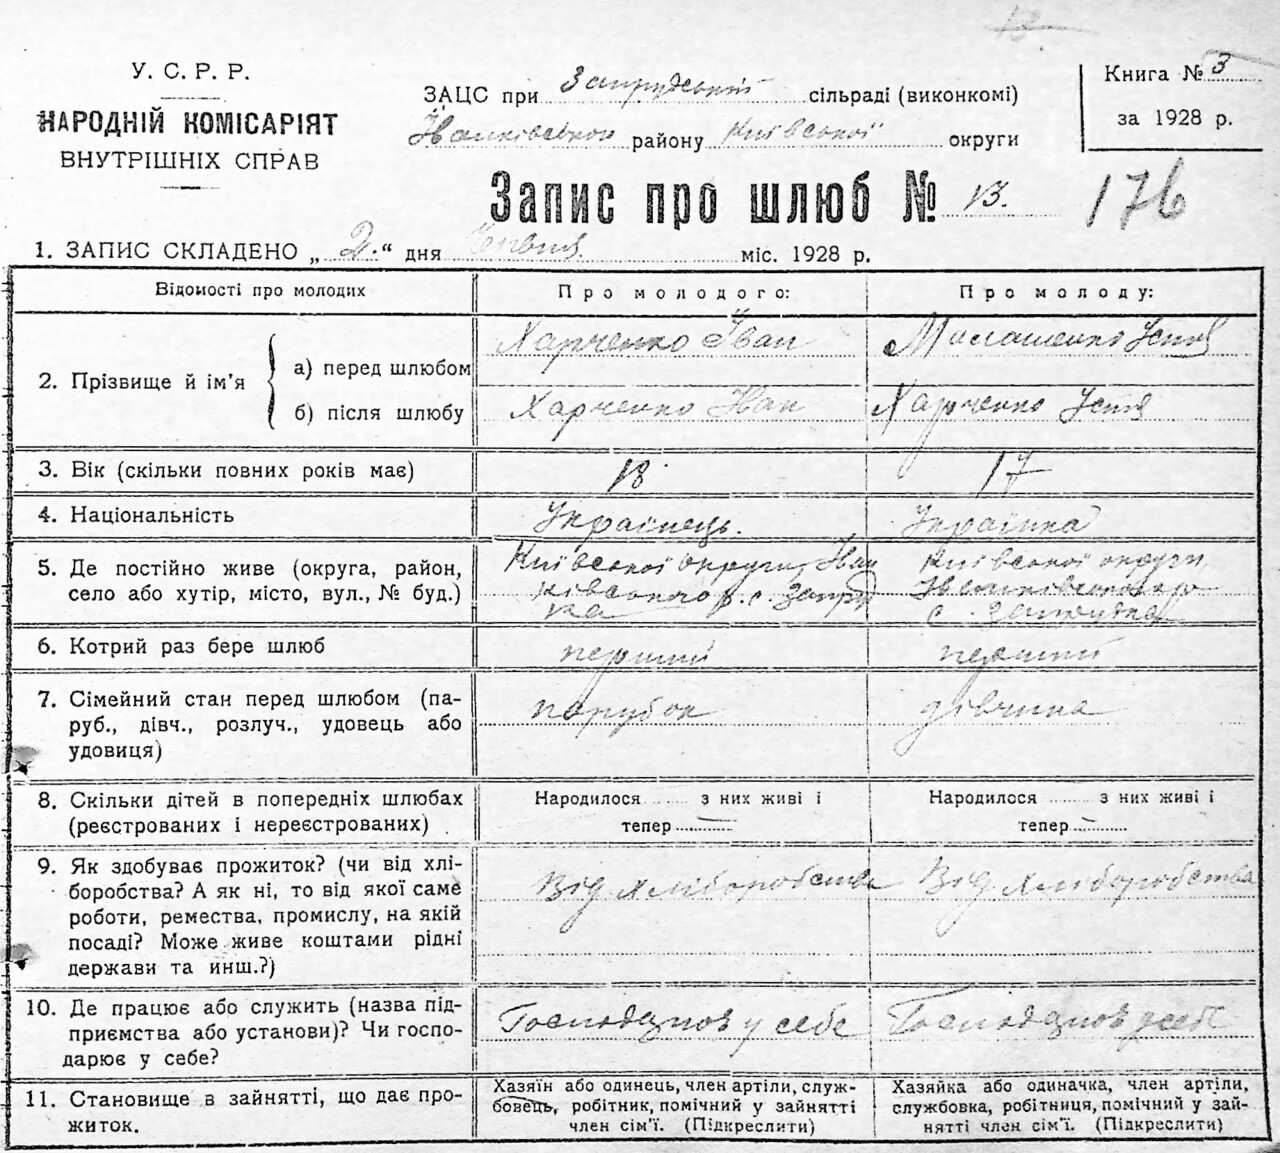 У. С. Р. Р.
НАРОДНІЙ КОМІСАРІЯТ
ВНУТРІШНІХ СПРАВ
ЗАЦС при Запрудській сільраді (виконкомі)
Іванківського району Київської округи
Книга № 3
за 1928 р.
Запис про шлюб № 13.
176
1. ЗАПИС СКЛАДЕНО „2.“ дня Червня міс. 1928 р.
Відомості про молодих
Про молодого:
Про молоду:
2. Прізвище й ім’я
а) перед шлюбом
Харченко Іван
Малашенко Устя
б) після шлюбу
Харченко Іван
Харченко Устя
3. Вік (скільки повних років має)
18
17
4. Національність
Українець.
Українка
5. Де постійно живе (округа, район,
село або хутір, місто, вул., № буд.)
Київської округи, Іван
ківського р. с. Запруд
ка
Київської округи,
Іванківського р
с. Запрудка
6. Котрий раз бере шлюб
перший
перший
7. Сімейний стан перед шлюбом (па-
руб., дівч., розлуч., удовець або
удовиця)
парубок
дівчина
8. Скільки дітей в попередніх шлюбах
(реєстрованих і нереєстрованих)
Народилося ...... з них живі і
тепер –
Народилося ...... з них живі і
тепер –
9. Як здобуває прожиток? (чи від хлі-
боробства? А як ні, то від якої саме
роботи, ремества, промислу, на якій
посаді? Може живе коштами рідні
держави та инш.?)
Від хліборобства
Від хліборобства
10. Де працює або служить (назва під-
приємства або установи)? Чи госпо-
дарює у себе?
у себе
у себе
11. Становище в зайнятті, що дає про-
житок.
Хазяїн або одинець, член артіли, служ-
бовець, робітник, помічний у зайнятті
член сім’ї. (Підкреслити)
Хазяйка або одиначка, член артіли,
службовка, робітниця, помічний у зай-
нятті член сім’ї. (Підкреслити)